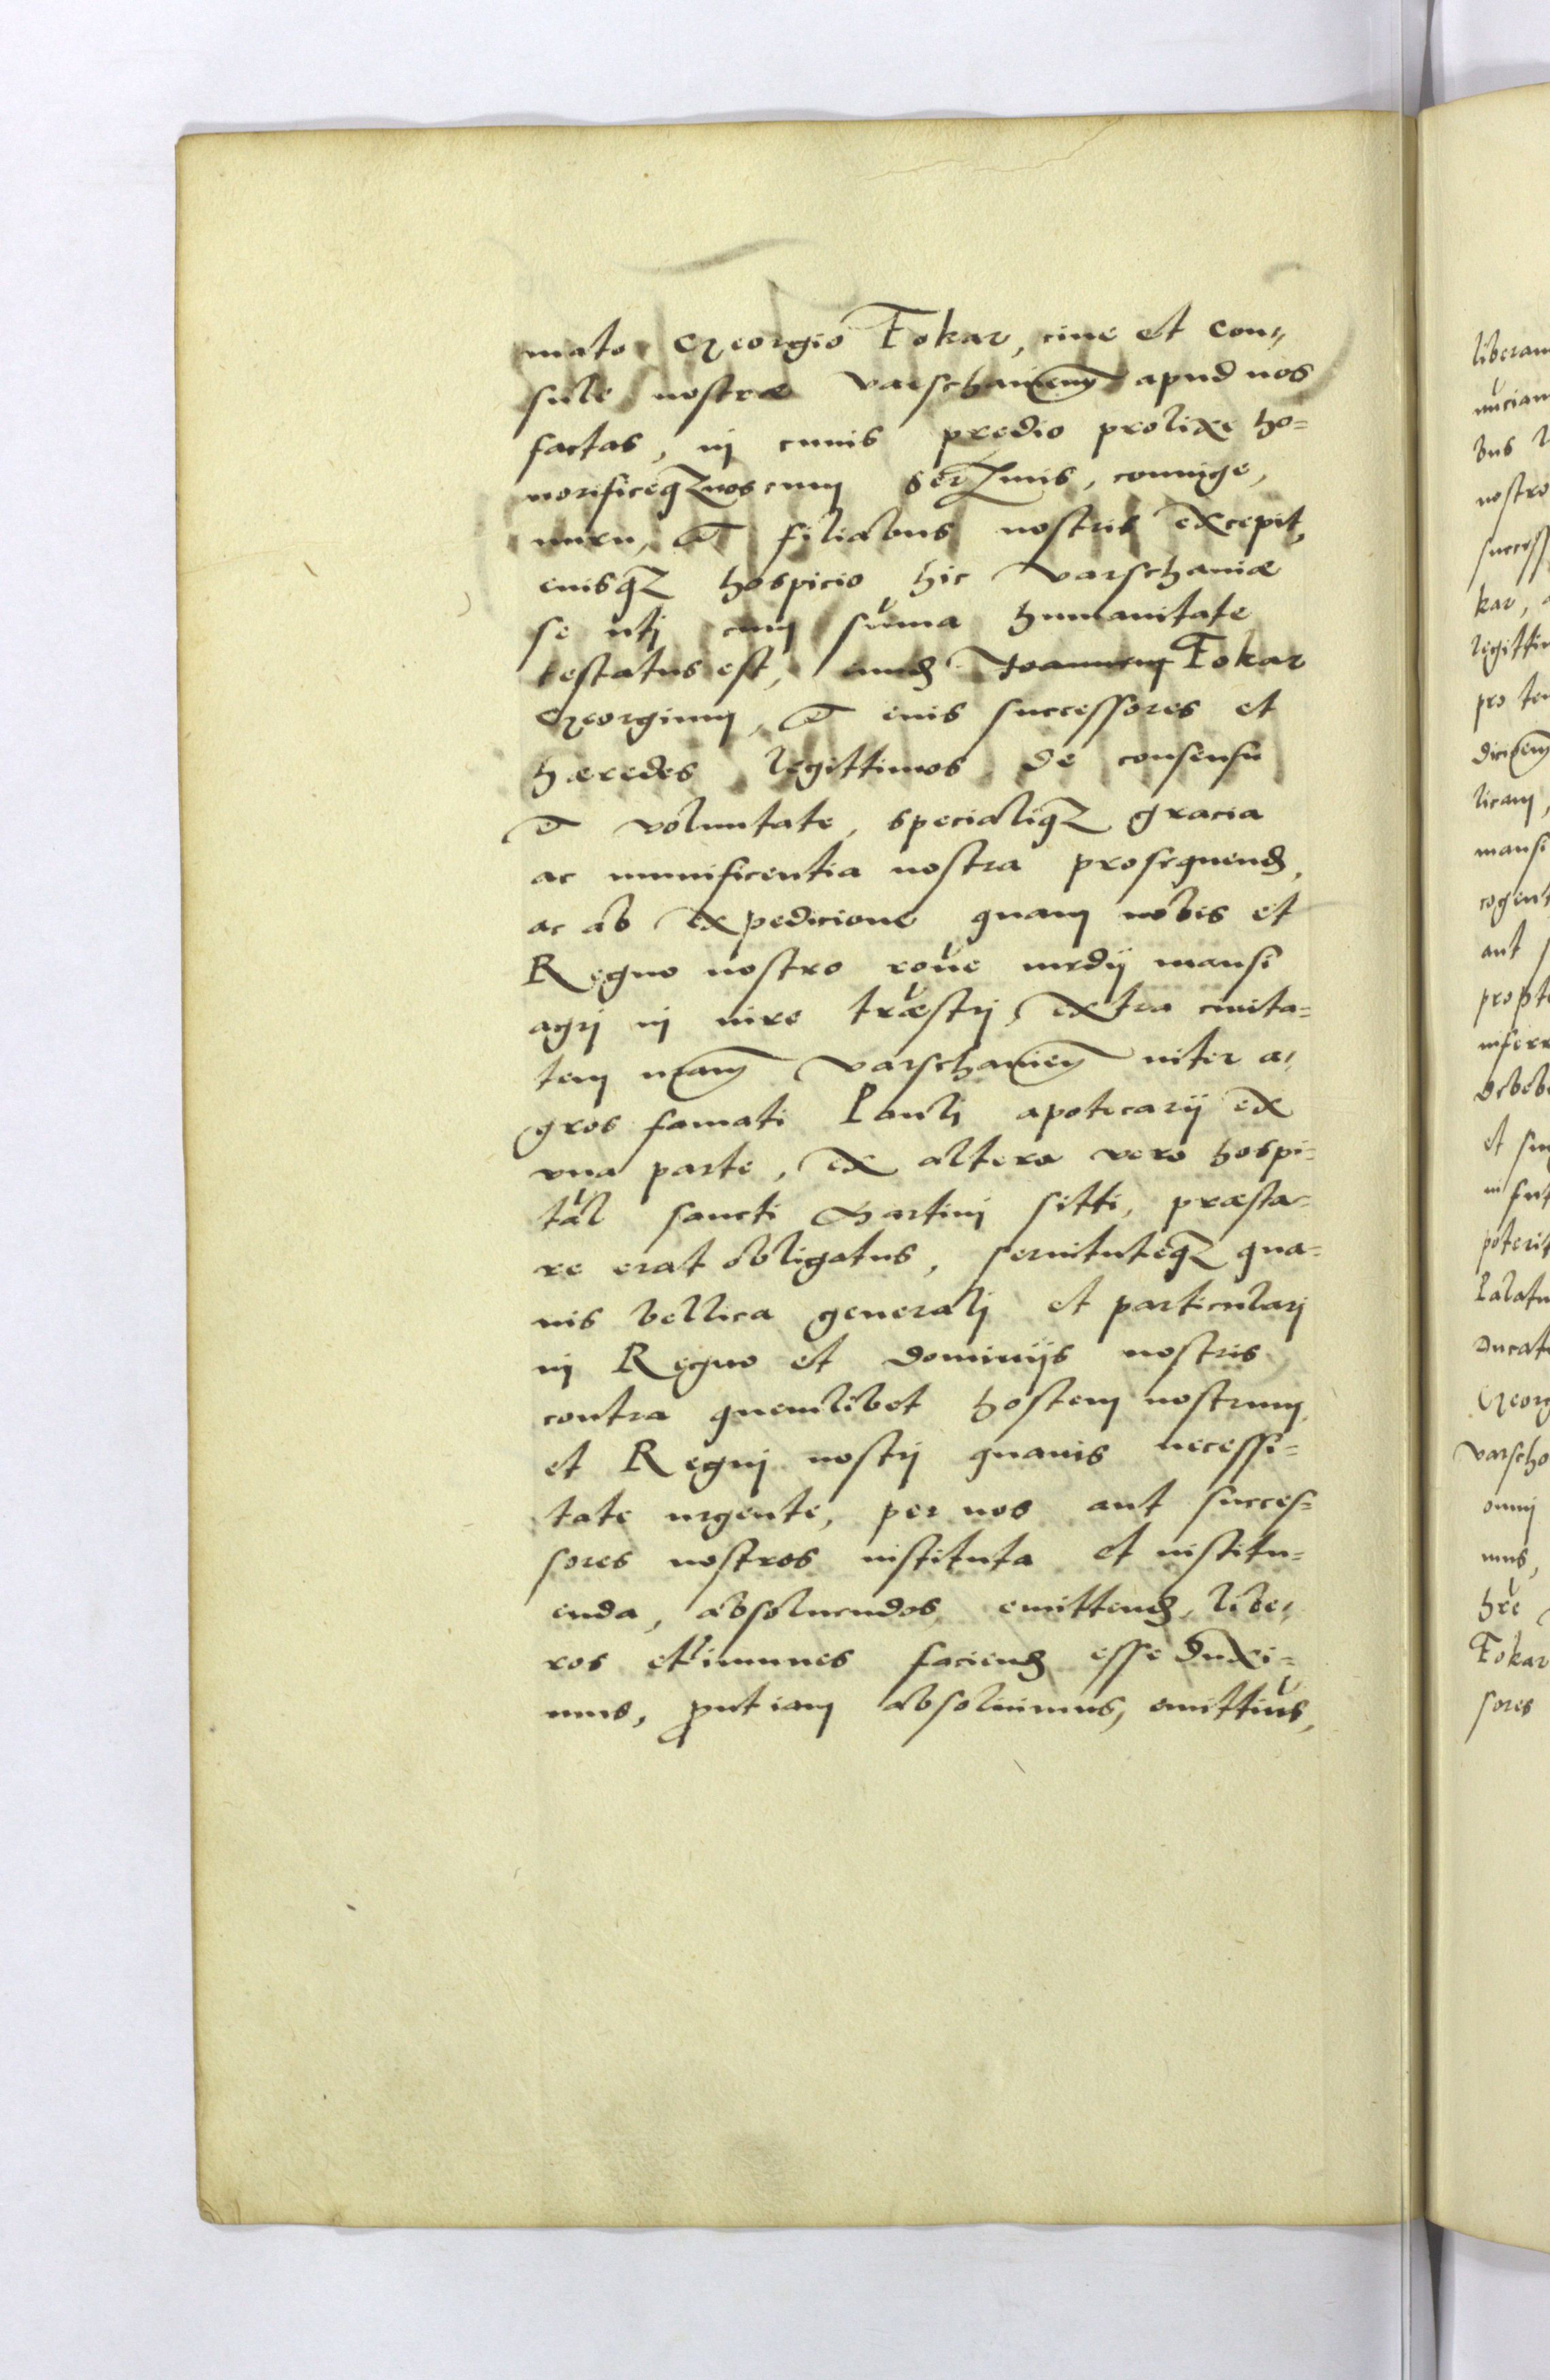 mato Georgio Fokar, ciue et con„
sule nostræ Varschauieñ apud nos
factas, in cuuis predio prolixe ho=
norificeq3 nos cum Serᵐⁱˢ, coniuge,
nuru, et filiabus nostris excepit,
eiusq3 hospicio hic Varschauiæ
se uti cum sũma humanitate
testatus est, eund Joannem Fokar
Georgium, et eius successores et
hæredes legittimos de consensu
et voluntate, specialiq3 gracia
ac munificentia nostra prosequend,
ac ab expedicione quam nobis et
Regno nostro roṽe medij mansi
agri in iure træstrj, extra ciuita=
tem nr̃am Varschauieñ inter a„
gros famati Pauli apotecarij ex
vna parte, ex altera vero hospi=
tal̃ sancti Martini sitti, præsta=
re erat obligatus, seruituteq3 qua=
uis bellica generalj et particularj
in Regno et dominijs nostris
contra quemlibet hostem nostrum
et Regni nostrj quauis necessi=
tate urgente, per nos aut succes=
sores nostros instituta et institu=
enda, absoluendos, emittend, libe„
ros et im̃unes faciend esse duxi=
mus, ꝓut iam absoluimus, emittim̃s,
liberam
nũciam
bus
nostro
success
kar,
legittim
pro tem
licam,
mansi
cogent
aut
propte
inferr
debeb
et
poterit
Palatu
Ducat
Georg
Varscha
omni
mus,
hr̃e
Fokar
sores